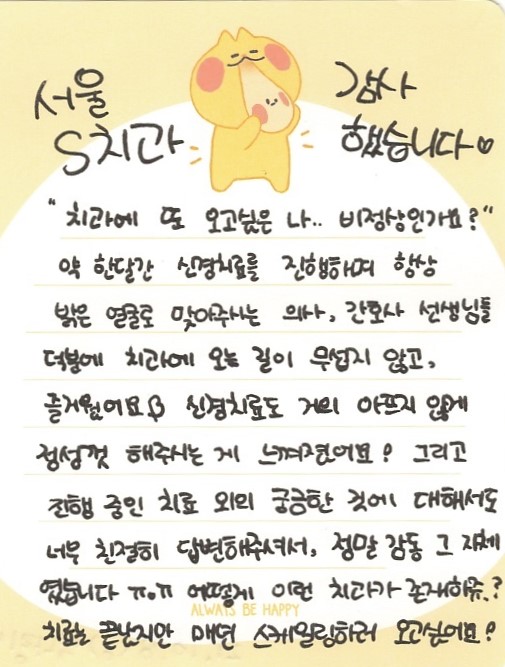 서울 감사
S치과 했습니다♡
"치과에 또 오고싶은 나.. 비정상인가요?"
약 한달간 신경치료를 진행하며 항상
밝은 얼굴로 맞아주시는 의사, 간호사 선생님들
덕분에 치과에 오는 길이 무섭지 않고,
즐거웠어요 신경치료도 거의 아프지 않게
정성껏 해주시는 게 느껴졌어요? 그리고
진행 중인 치료 외의 궁금한 것에 대해서도
너무 친절히 답변해주셔서, 정말 감동 그 자체
였습니다 ㅠ.ㅠ 어떻게 이런 치과가 존재하쥬.?
ALWAYS BE HAPPY
치료는 끝났지만 매번 스케일링하러 오고싶어요?